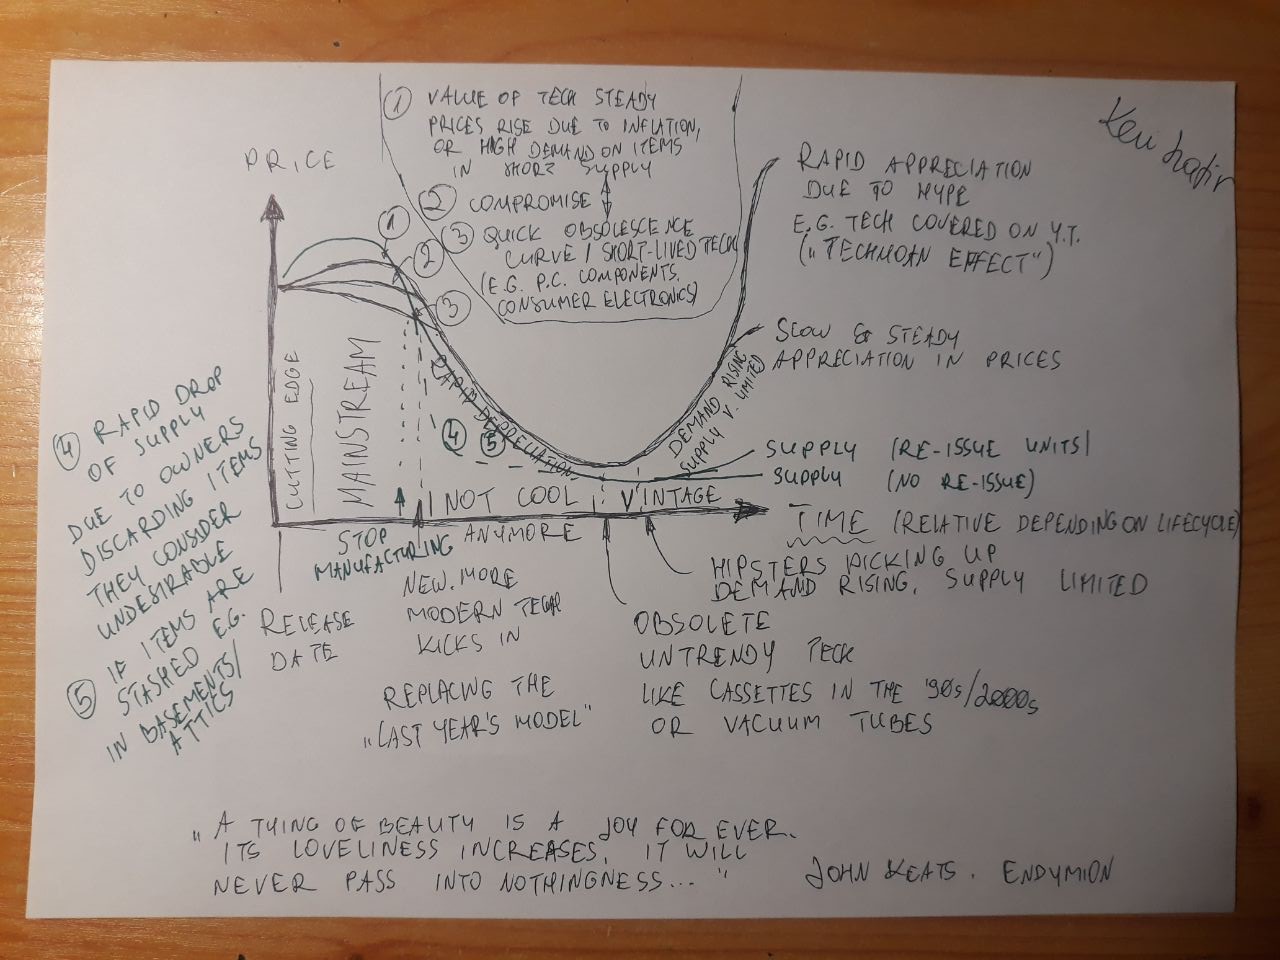 PRICE
① VALUE OF TECH STEADY
PRICES RISE DUE TO INFLATION,
OR HIGH DEMAND ON ITEMS
IN SHORT SUPPLY
② COMPROMISE
③ QUICK OBSOLESCENCE
CURVE / SHORT-LIVED TECH
(E.G. P.C. COMPONENTS.
CONSUMER ELECTRONICS)
①
②
③
RAPID APPRECIATION
DUE TO HYPE
E.G. TECH COVERED ON Y.T.
(„TECHMOAN EFFECT")
SLOW & STEADY
APPRECIATION IN PRICES
CUTTING EDGE
MAINSTREAM
RAPID DEPRECIATION
④ ⑤
DEMAND RISING
SUPPLY V. LIMITED
SUPPLY (RE-ISSUE UNITS)
SUPPLY (NO RE-ISSUE)
NOT COOL
ANYMORE
VINTAGE
TIME (RELATIVE DEPENDING ON LIFECYCLE)
④ RAPID DROP
OF SUPPLY
DUE TO OWNERS
DISCARDING ITEMS
THEY CONSIDER
UNDESIRABLE
⑤ IF ITEMS ARE
STASHED E.G.
IN BASEMENTS/
ATTICS
RELEASE
DATE
STOP
MANUFACTURING
NEW. MORE
MODERN TECH
KICKS IN
REPLACING THE
„LAST YEAR'S MODEL"
HIPSTERS PICKING UP
DEMAND RISING, SUPPLY LIMITED
OBSOLETE
UNTRENDY TECH
LIKE CASSETTES IN THE '90s/2000s
OR VACUUM TUBES
„A THING OF BEAUTY IS A JOY FOR EVER.
ITS LOVELINESS INCREASES, IT WILL
NEVER PASS INTO NOTHINGNESS..."
JOHN KEATS. ENDYMION